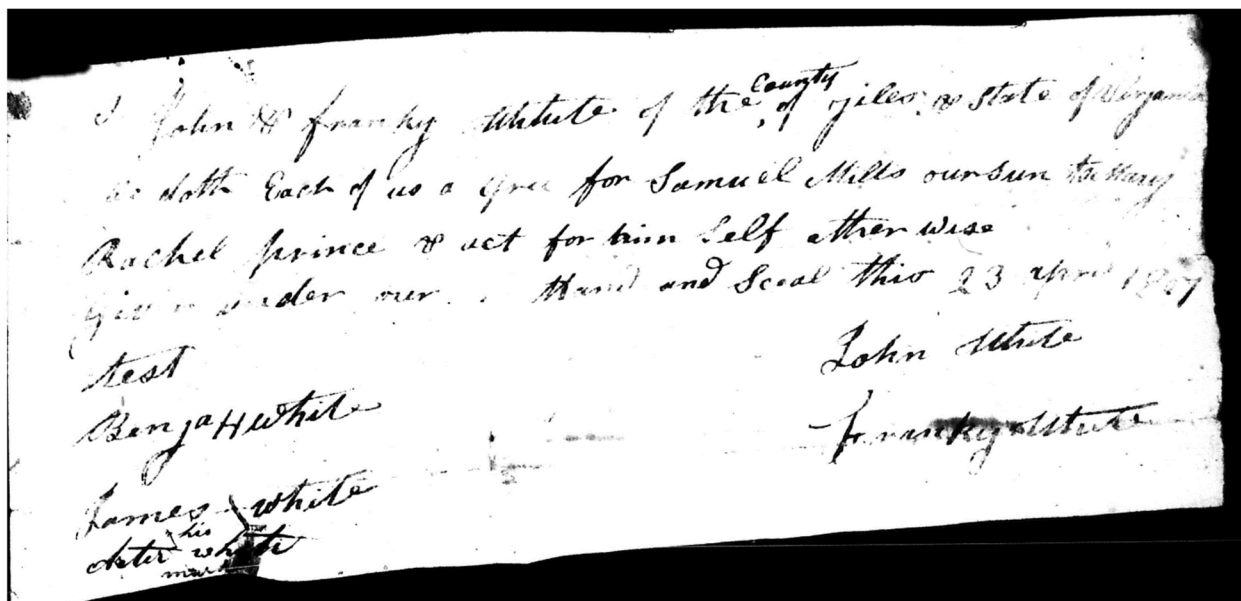 I John & franky White of the County of giles & State of Virgania
do doth Each of us a gree for Samuel Mills our sun to Mary
Rachel prince & act for him Self other wise
Given under our Hand and Sceal this 23 april 1807
test
John White
Benja H White
franky White
James White
his
white
mark